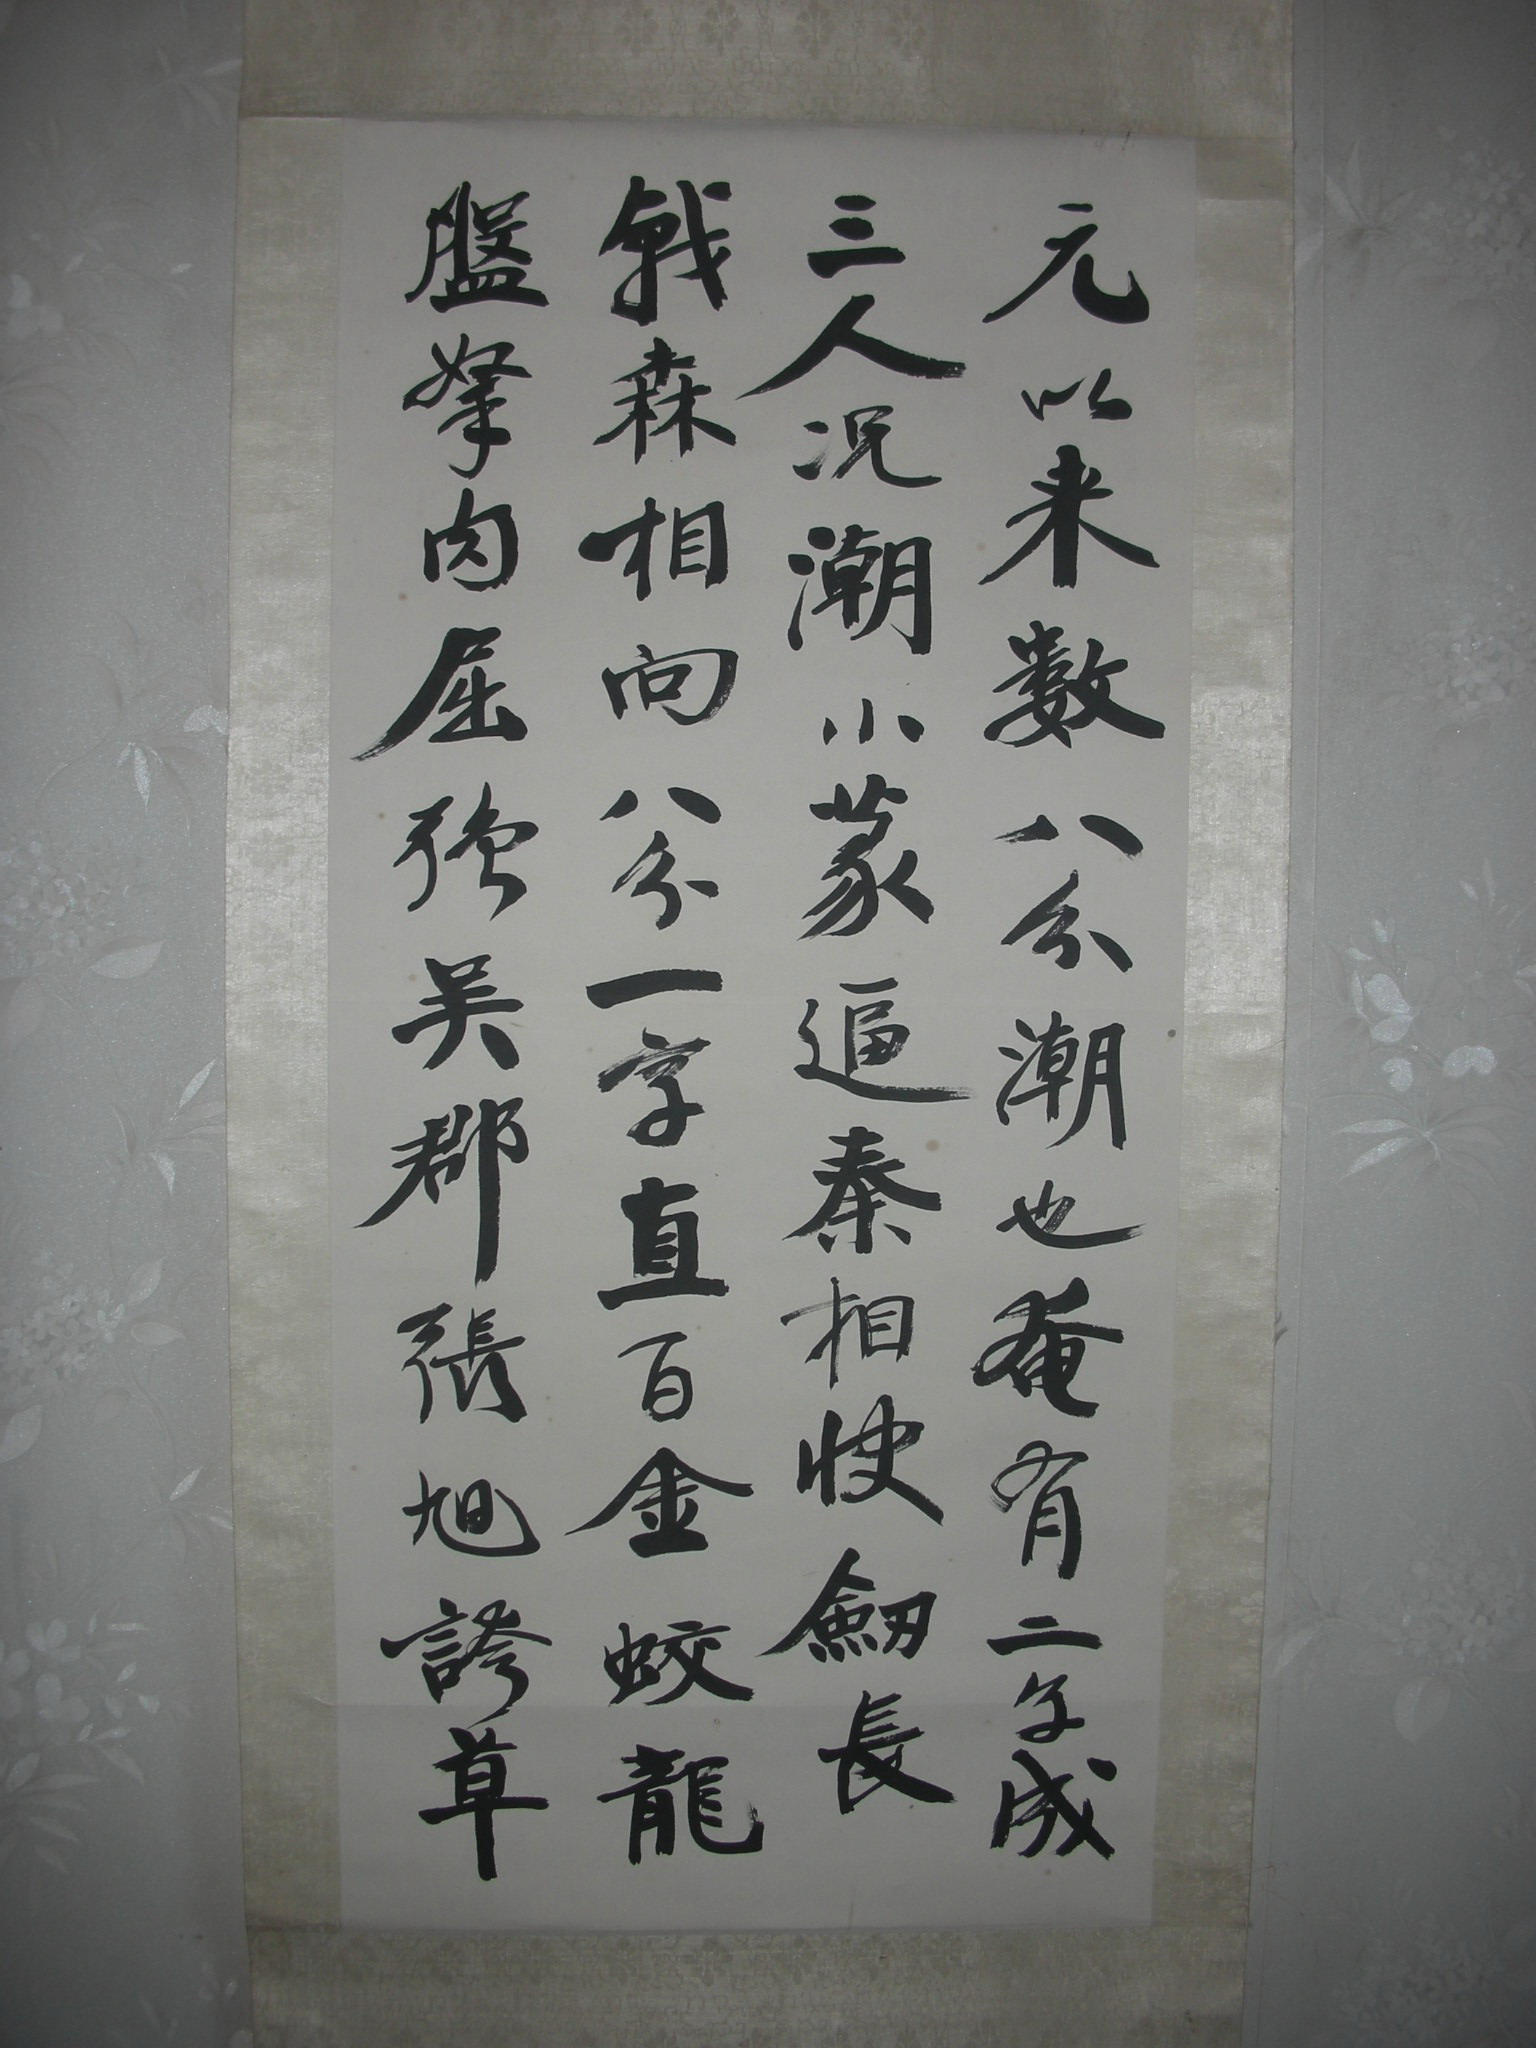 元以来數八分潮也奄有二子成
三人况潮小篆逼秦相快劒長
戟森相向八分一字直百金蛟龍
盤拏肉屈强吴郡張旭誇草